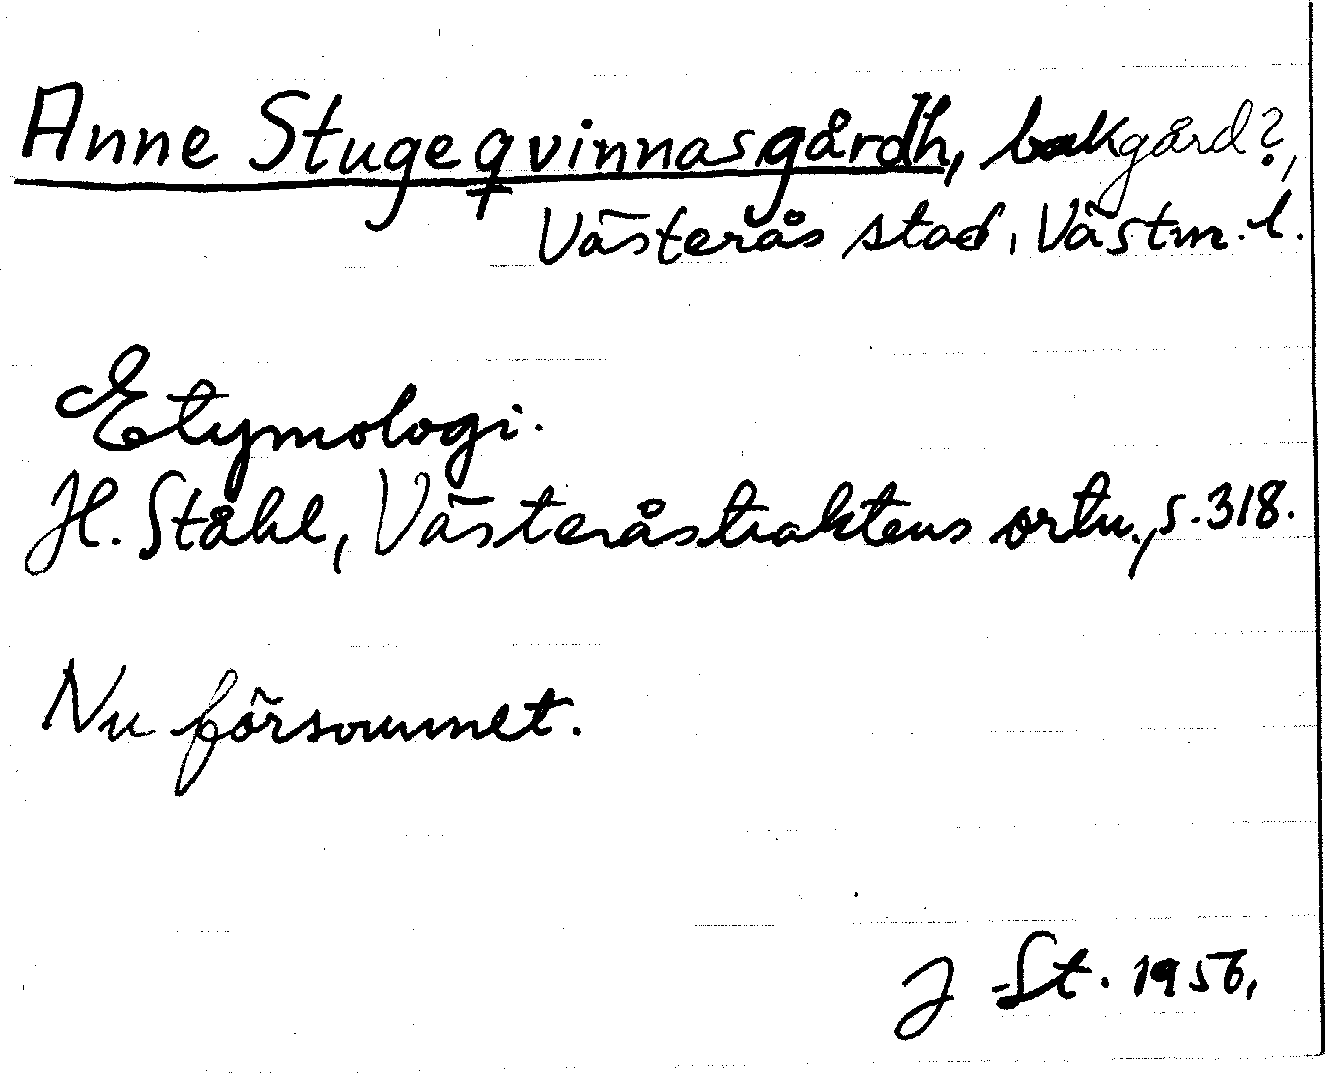 Anne Stugeqvinnasgårdh, bakgård?,
Västerås stad, Västm. l.
Etymologi.
H. Ståhl, Västeråstraktens ortn., s. 318.
Nu försvunnet.
J St. 1956.